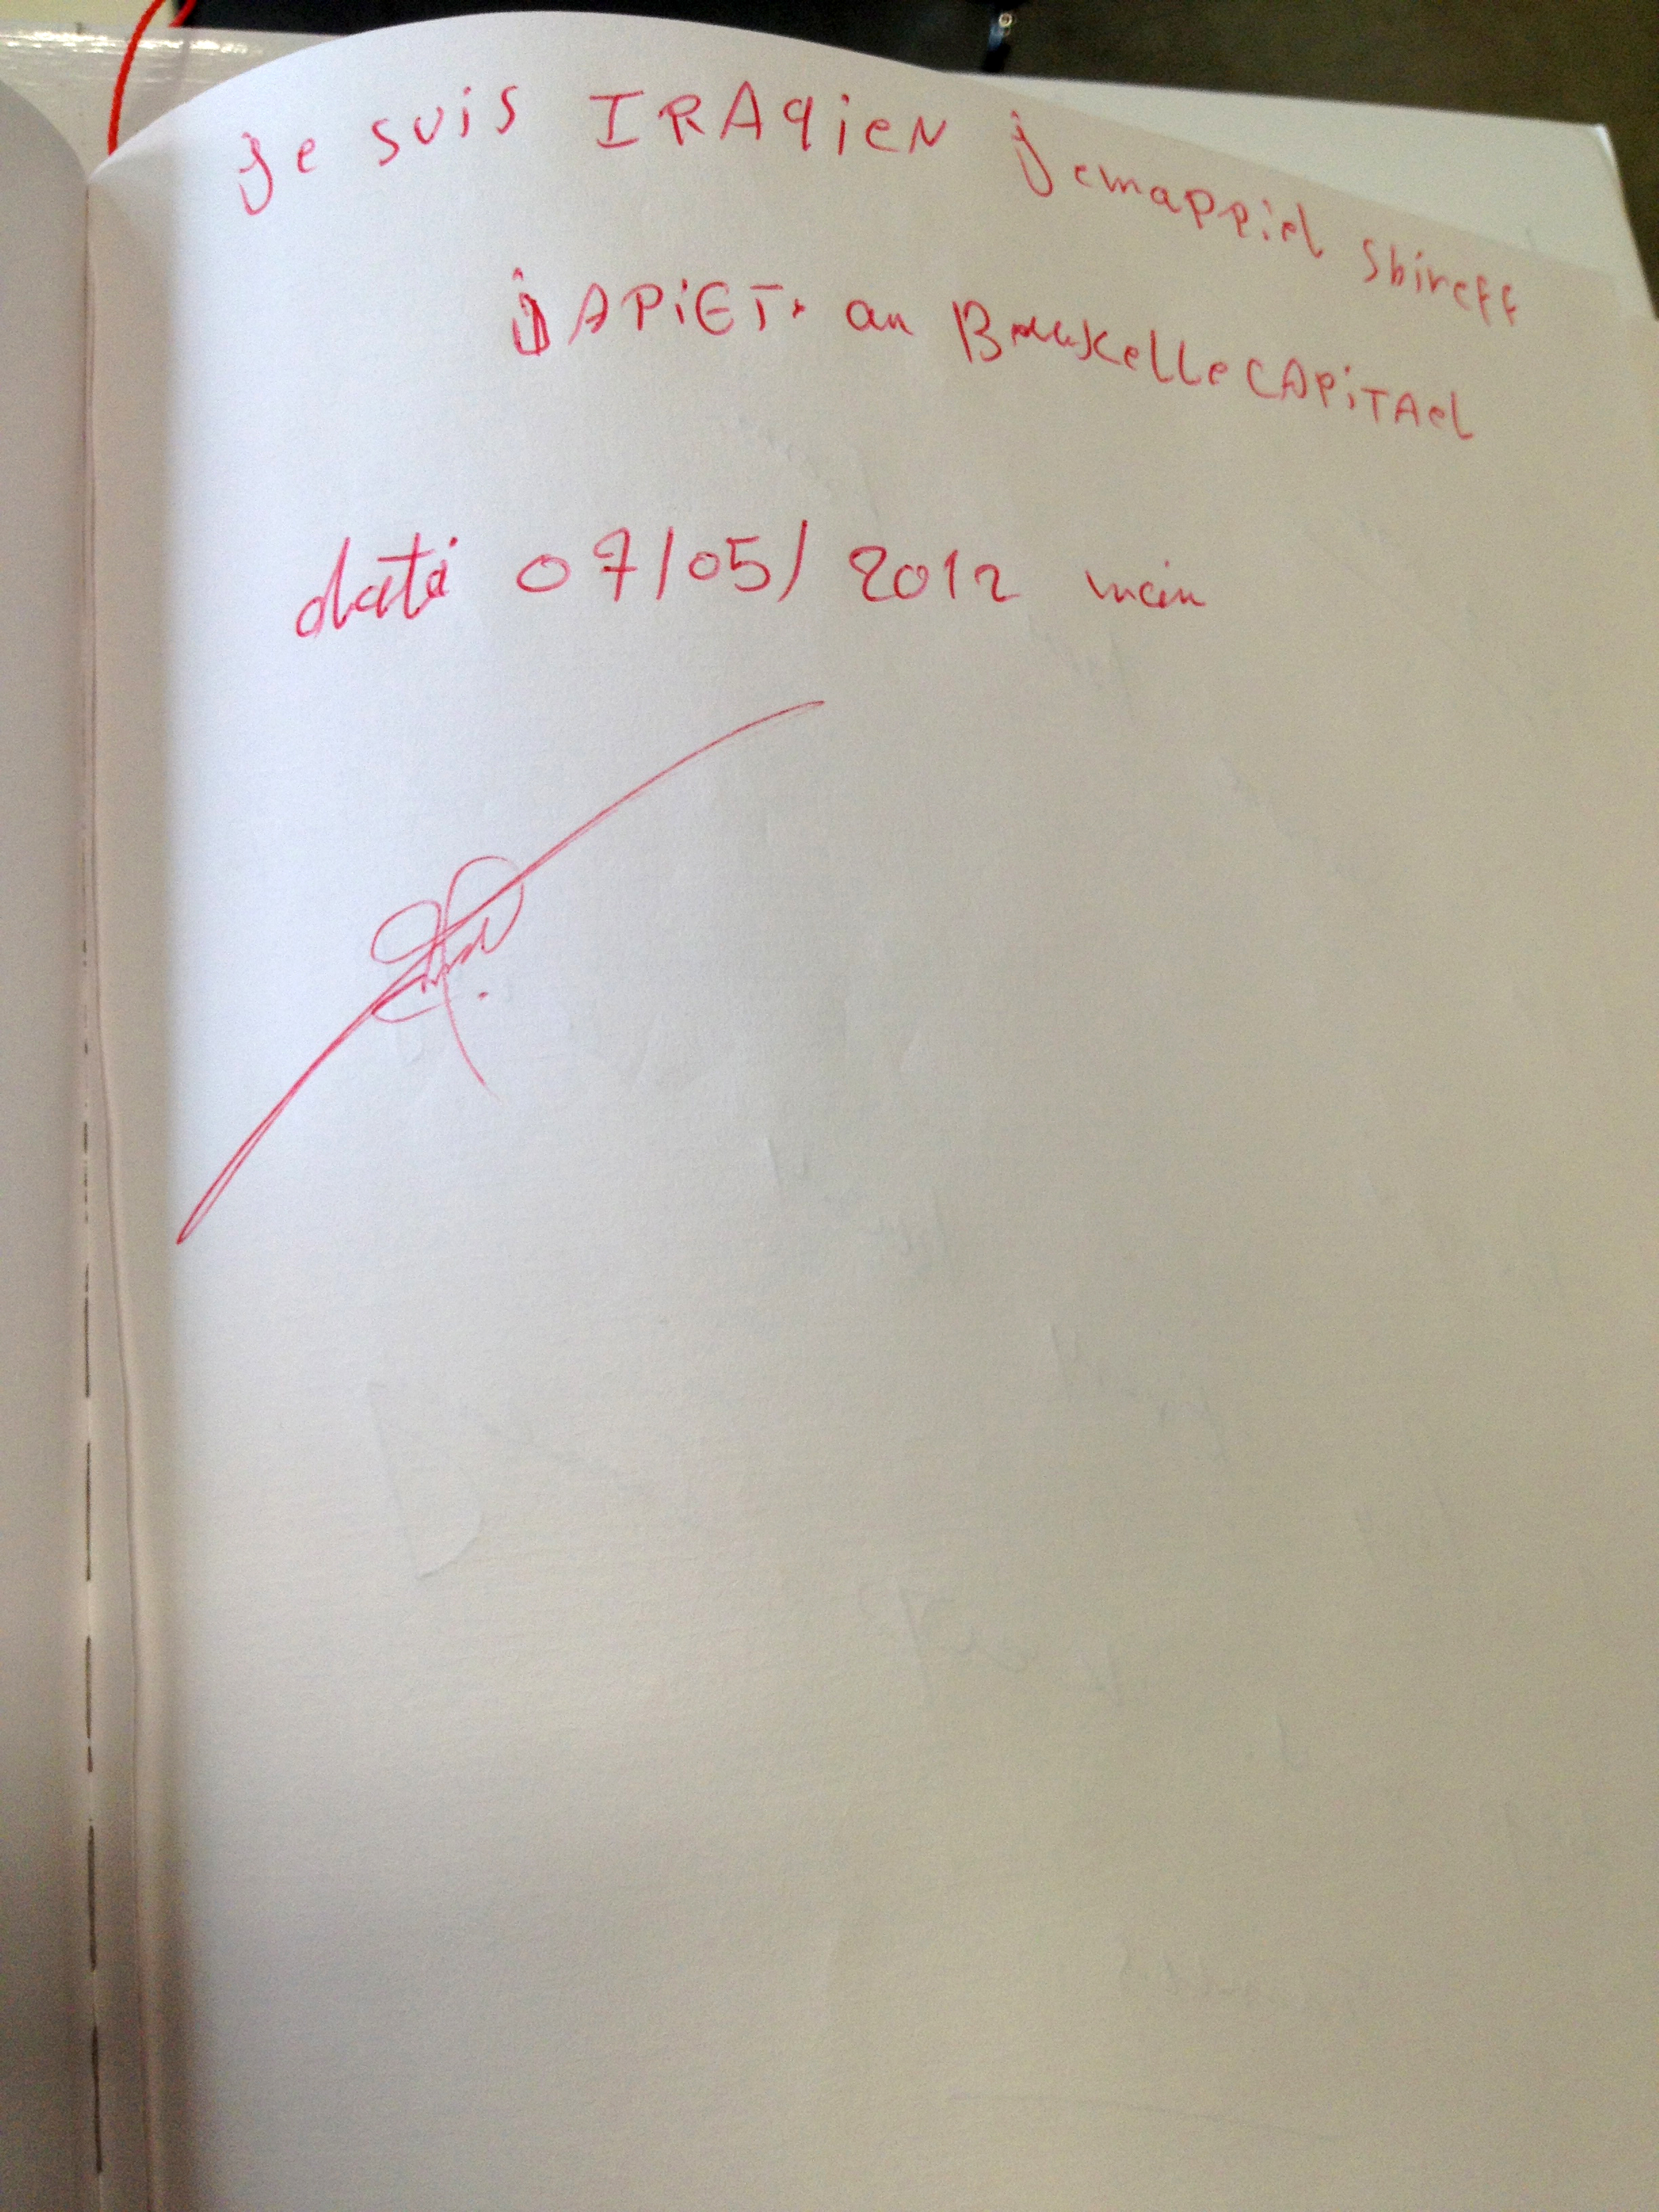 je suis IRAqieN jemappiel Sbireff
jAPiET. an BruxelleCAPiTAel
daté 07/05/2012